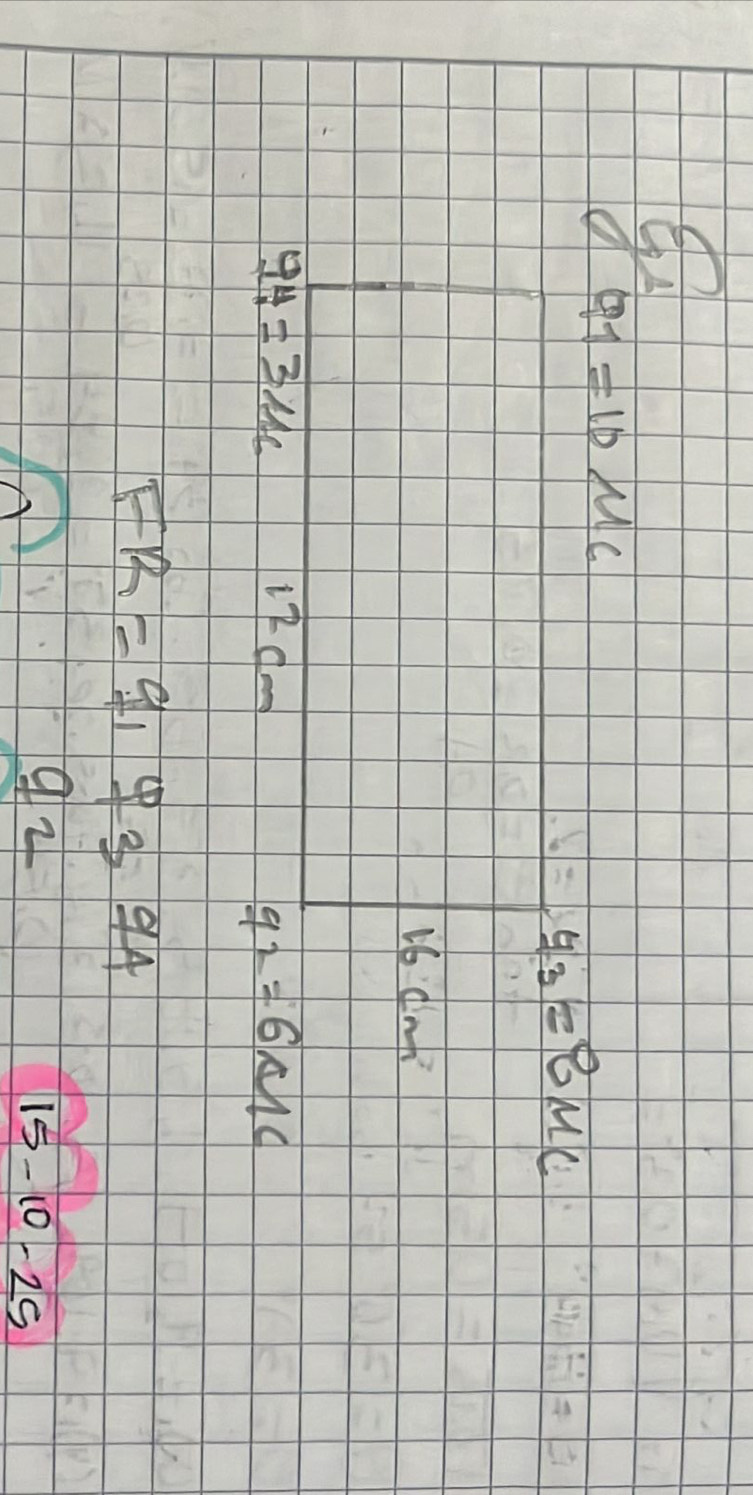 Ej
q1 = 10 Mc
q3 = 8 Mc
16 cm
q4 = 3 Mc
12 cm
q2 = 6 Mc
FR = q1 q3 q4
q2
15-10-25